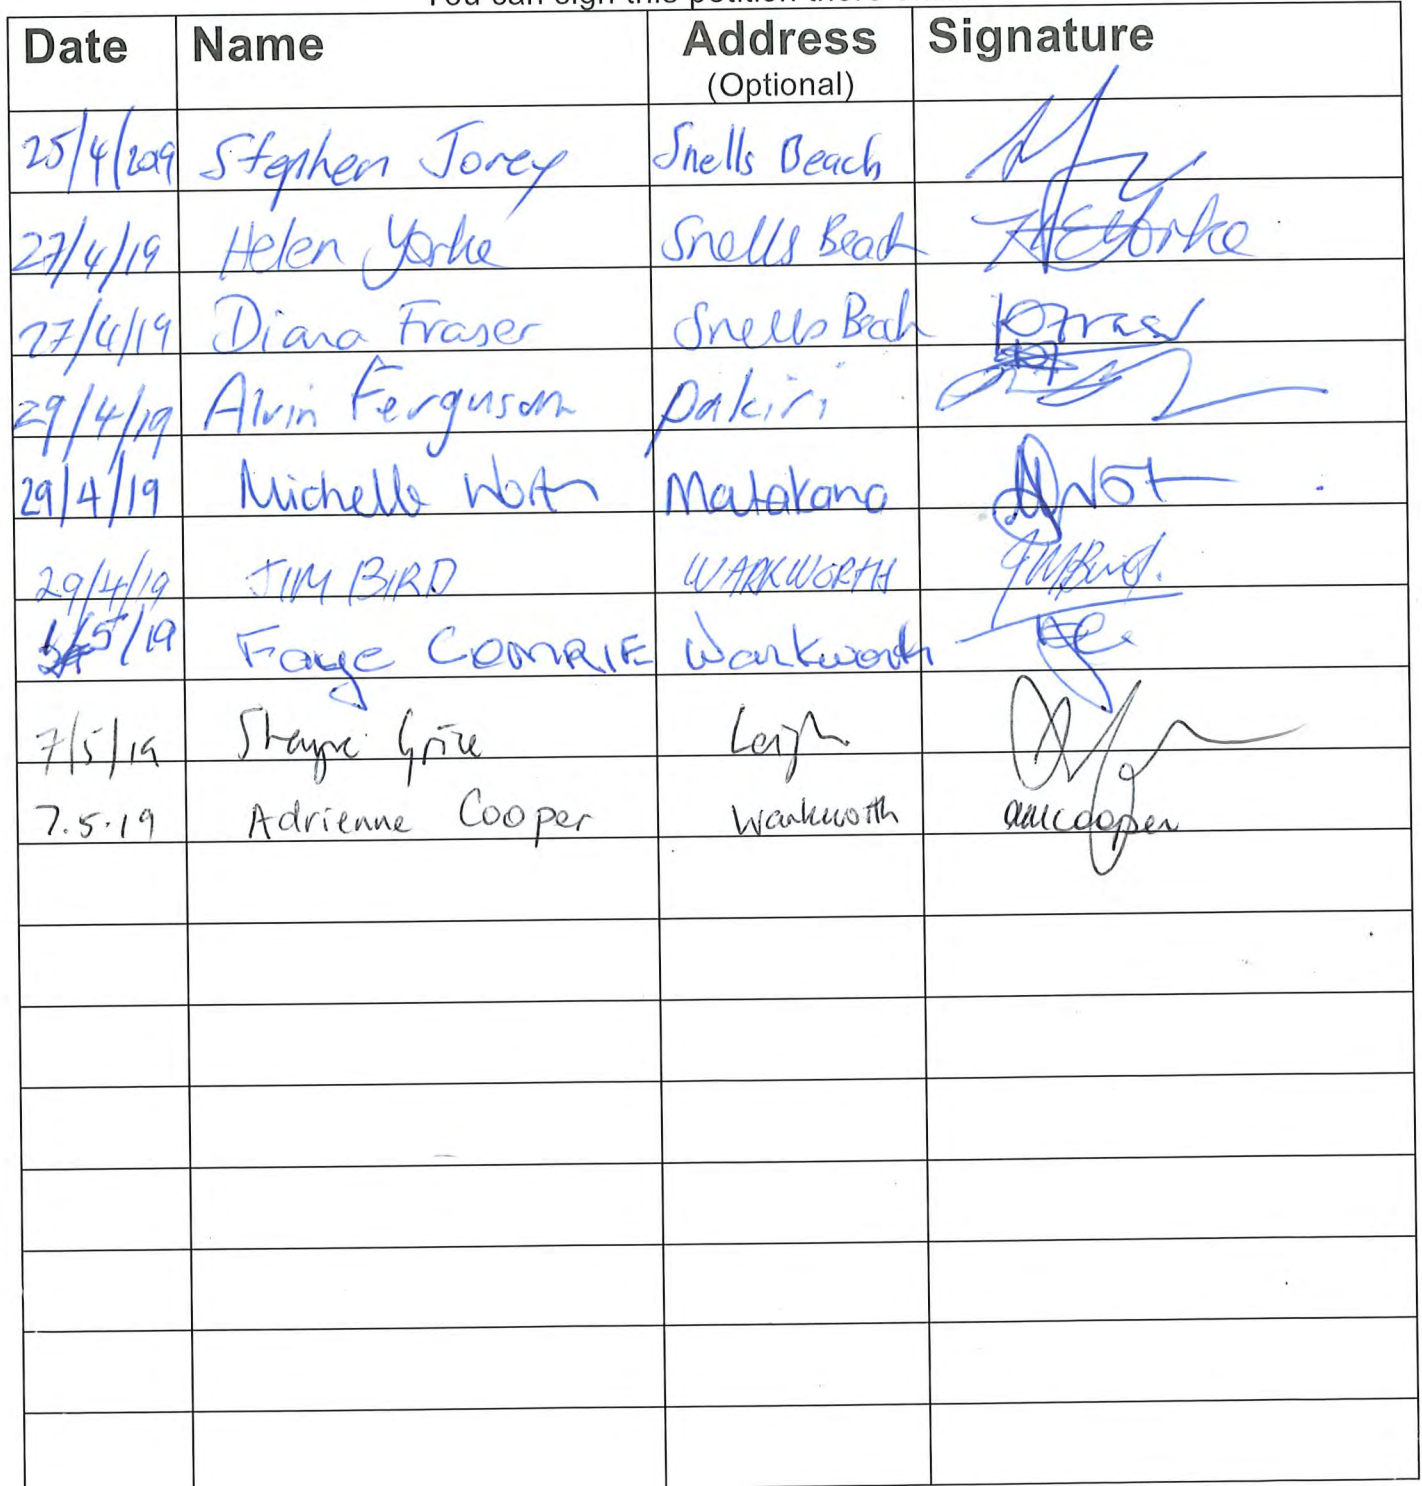 You can sign this petition there
Date Name Address Signature
(Optional)
25/4/2019 Stephen Jorey Snells Beach
27/4/19 Helen Yorke Snells Beach HEYorke
27/4/19 Diana Fraser Snells Beach DFraser
29/4/19 Alvin Ferguson pakiri
29/4/19 Michelle Matakana
29/4/19 JIM BIRD WARKWORTH JMBird.
/5/19 Faye COMRIE Warkworth
7/5/19 Shayne Grice Leigh
7.5.19 Adrienne Cooper Warkworth amcooper